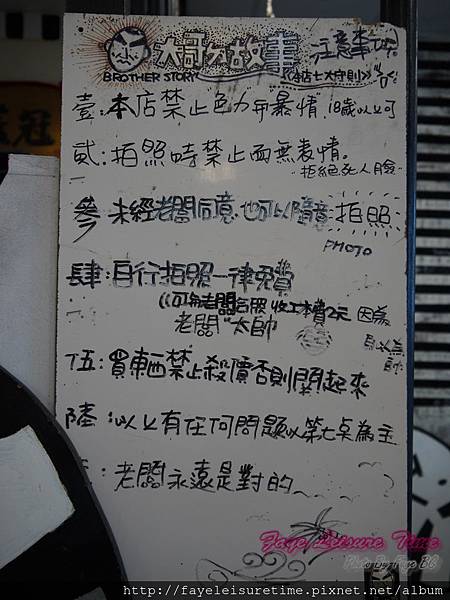 大哥ㄉ故事 注意事項
BROTHER STORY
《本店七大守則》
壹:本店禁止色力弄暴情,18歲以上可
貳:拍照時禁止面無表情。
拒絕死人臉
參 未經老闆同意,也可以隨意拍照
PHOTO
肆:自行拍照一律免費
((可和老闆合照 收工本費2元 因為
老闆"太帥
伍:買東西禁止殺價否則關起來
陸:以上有任何問題以第七桌為主
:老闆永遠是對的
Faye Leisure Time
Photo By Faye Bö
http://fayeleisuretime.pixnet.net/album